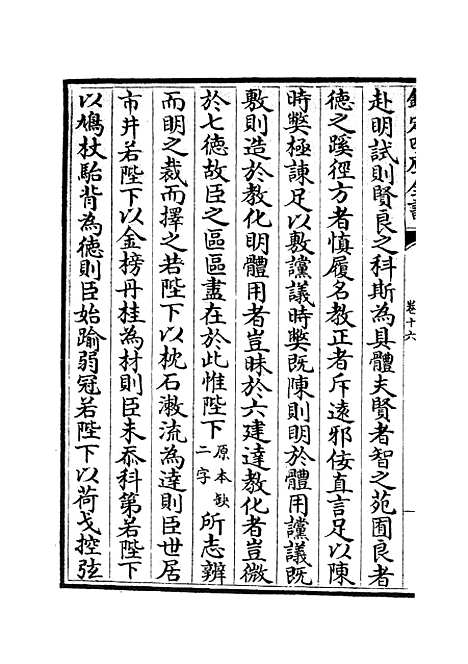 欽定四庫全書
卷十六
赴明試則賢良之科斯為具體夫賢者智之苑囿良者
德之蹊徑方者慎履名教正者斥遠邪佞直言足以陳
時獘極諫足以敷讜議時獘既陳則明於體用讜議既
敷則造於教化明體用者豈昧於六建達教化者豈微
於七德故臣之區區盡在於此惟陛下原本缺二字所志辨
而明之裁而擇之若陛下以枕石漱流為達則臣世居
市井若陛下以金榜丹桂為材則臣未忝科第若陛下
以鳩杖駘背為德則臣始踰弱冠若陛下以荷戈控弦